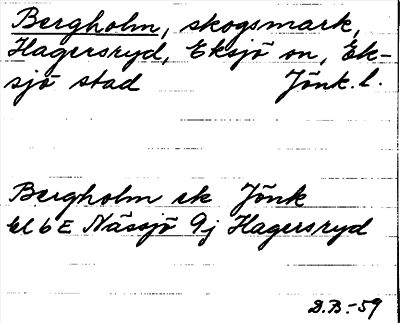 Bergholm, skogsmark,
Hagersryd, Eksjö on, Ek-
sjö stad Jönk. l.
Bergholm ek Jönk
bl 6 E Nässjö 9j Hagersryd
D.B.-59